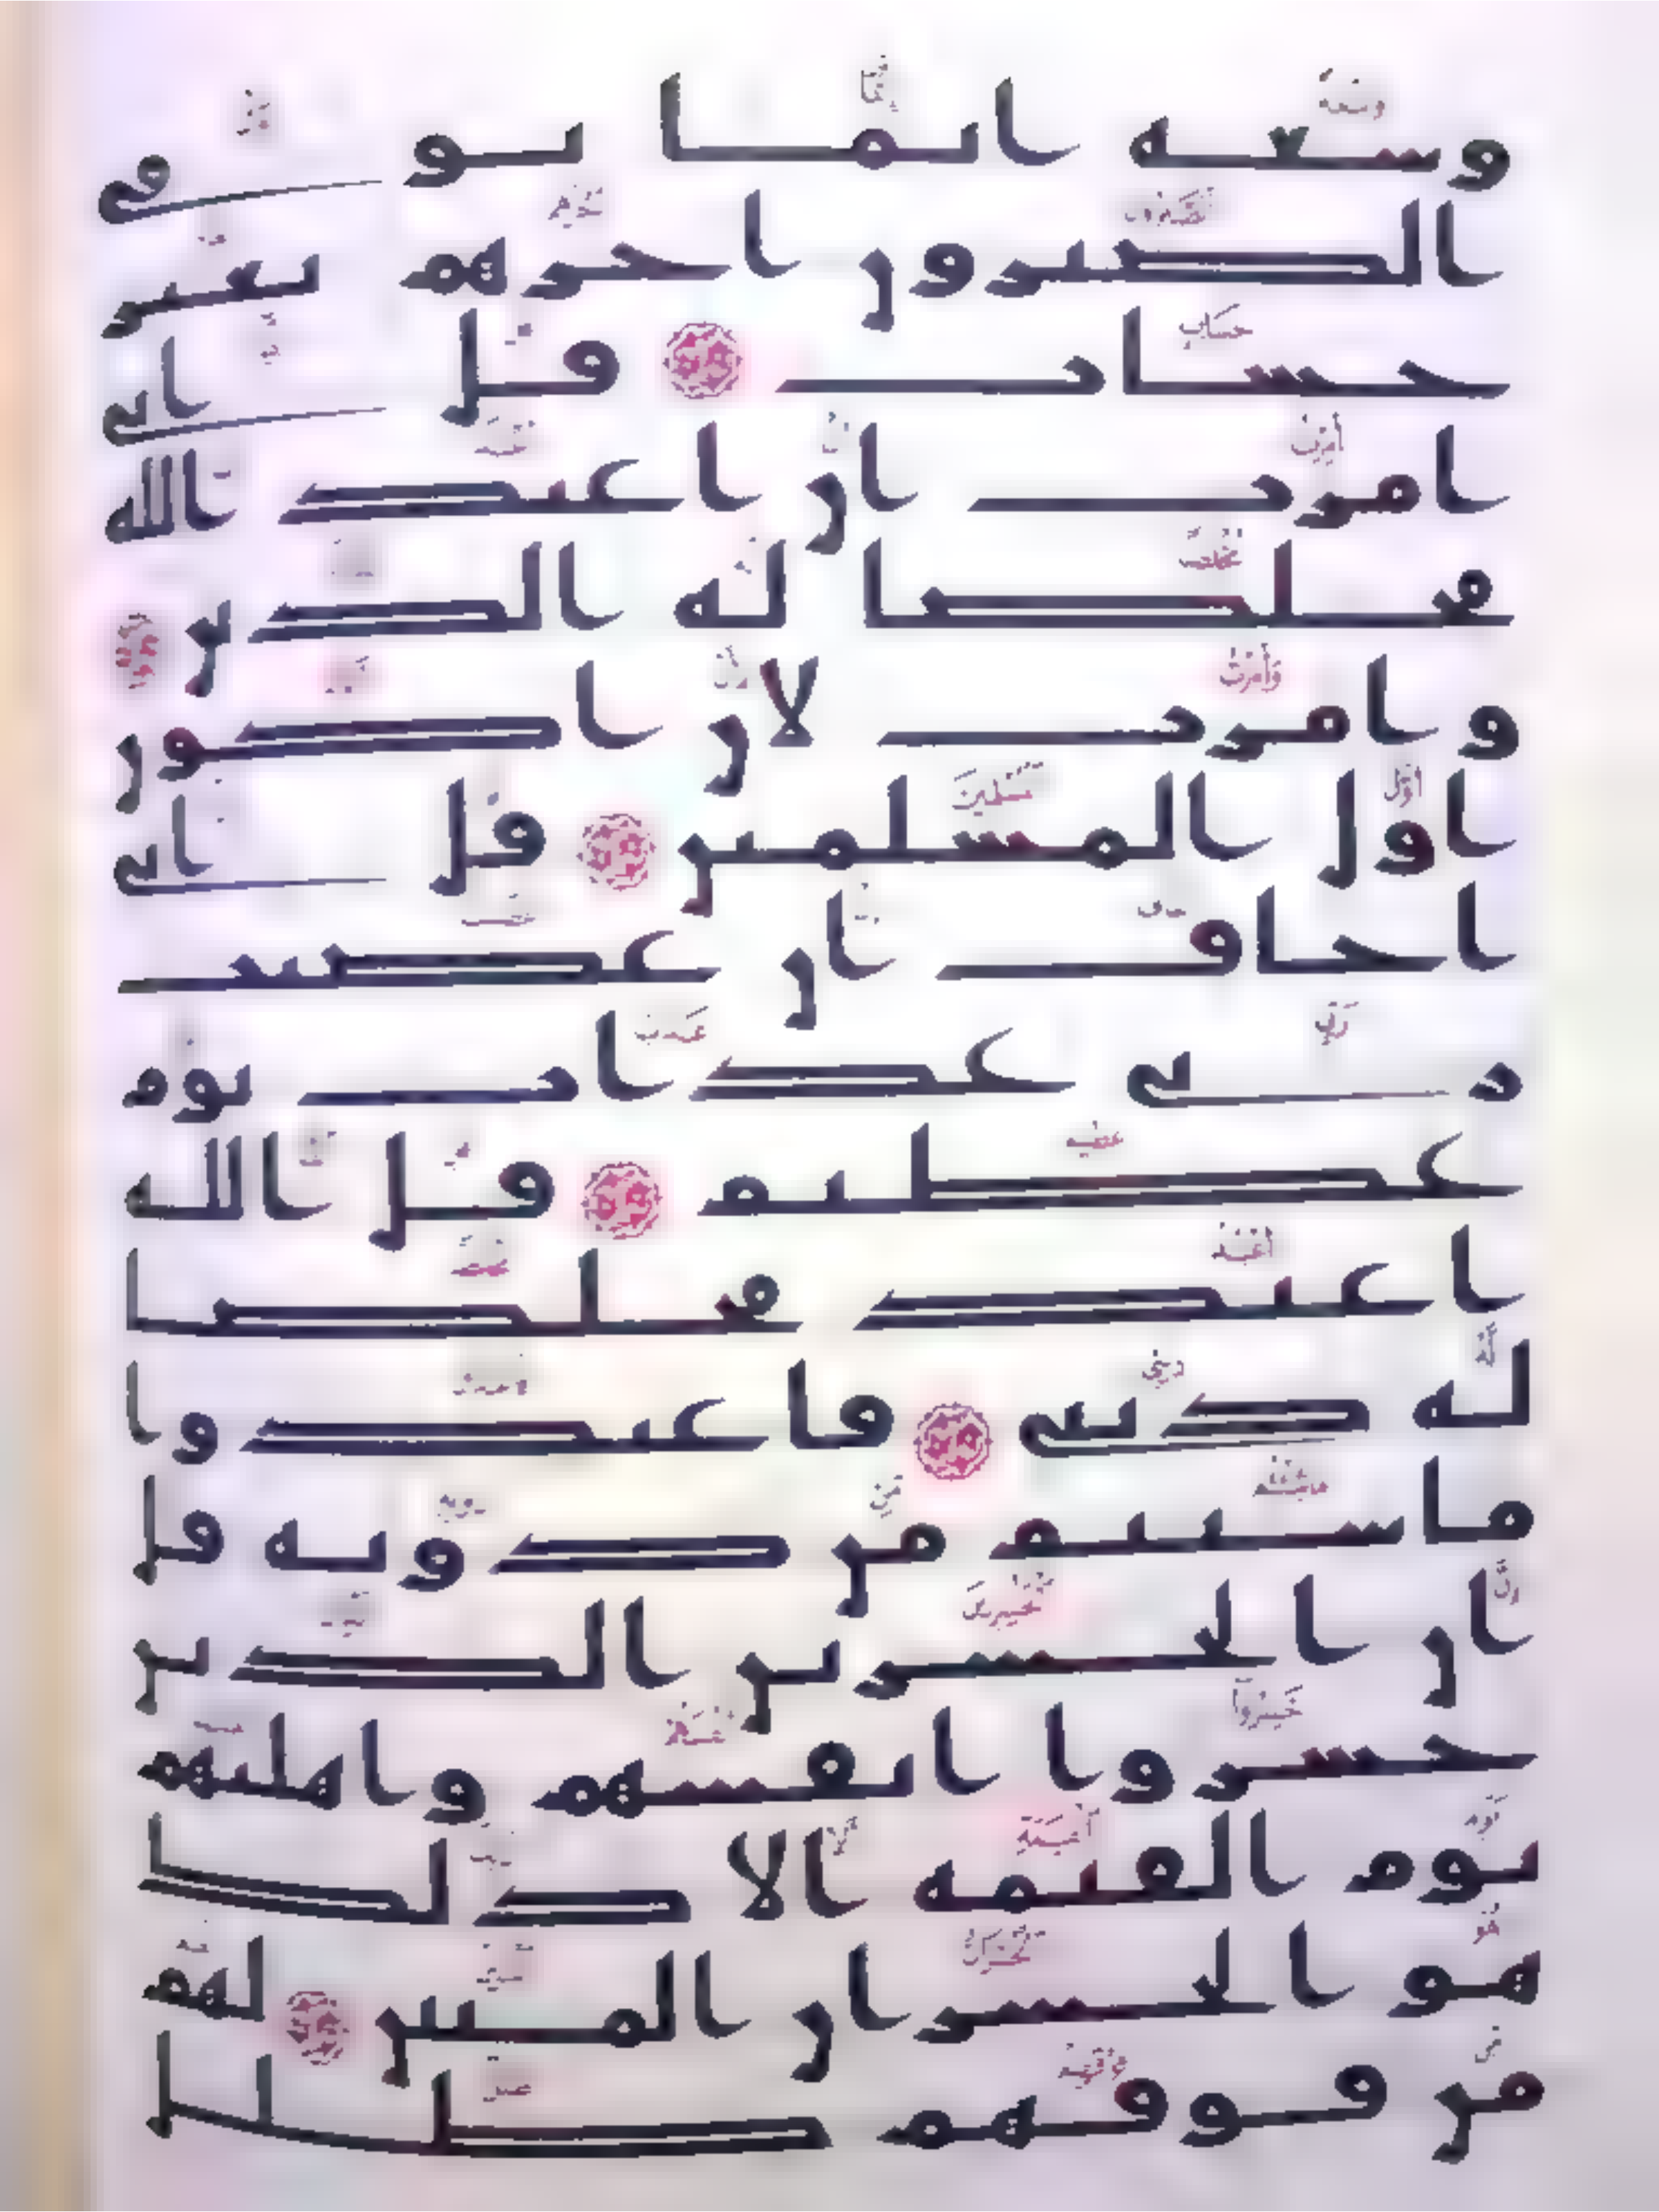 وسعه انما يو فى
الصبرون اجرهم بغير
حساب قل انى
امرت ان اعبد الله
مخلصا له الدين
وامرت لان اكون
اول المسلمين قل انى
اخاف ان عصيت
ربى عذاب يوم
عظيم قل الله
اعبد مخلصا
له دينى فاعبدوا
ما شئتم من دونه قل
ان الخسرين الذين
خسروا انفسهم واهليهم
يوم القيمه الا ذلك
هو الخسران المبين لهم
من فوقهم ظلل